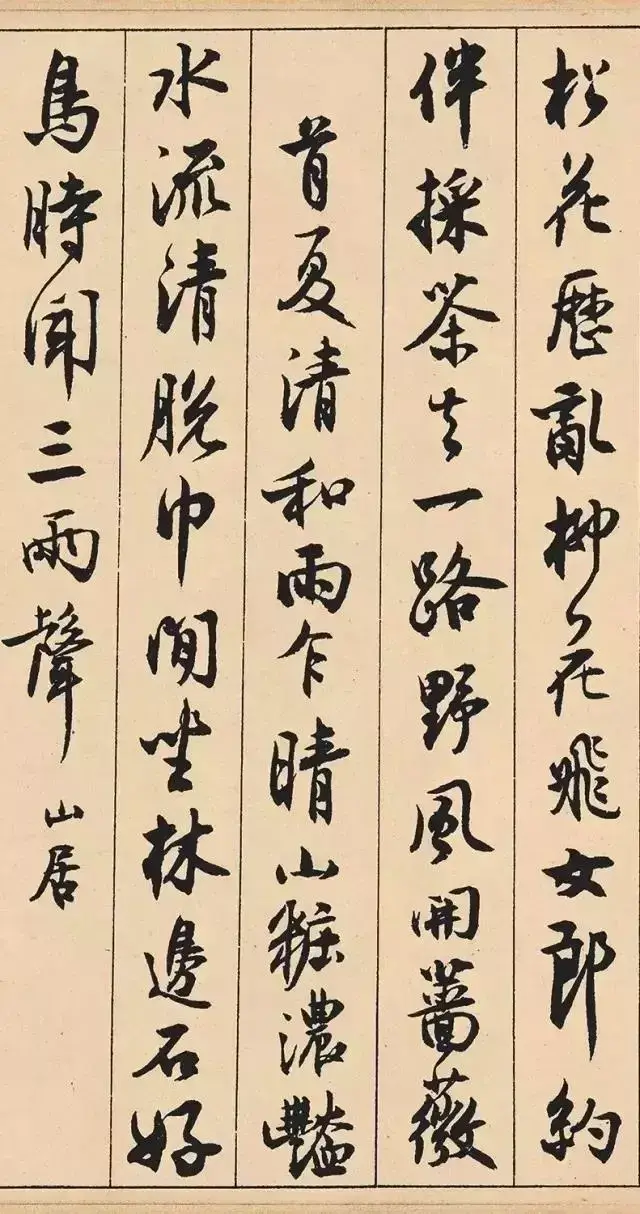 松花歷亂柳花飛女郎約
伴採茶去一路野風開薔薇
首夏清和雨乍晴山粧濃豔
水流清脱巾閒坐林邊石好
鳥時聞三兩聲 山居